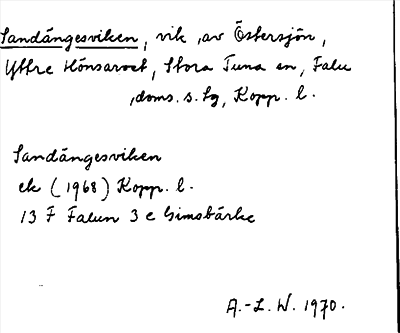 Sandängesviken, vik ,av Östersjön,
Yttre Hönsarvet, Stora Tuna sn, Falu
,doms. s. lg, Kopp. l.
Sandängesviken
ek (1968) Kopp. l.
13 F Falun 3 c Gimsbärke
A.-L. W. 1970.